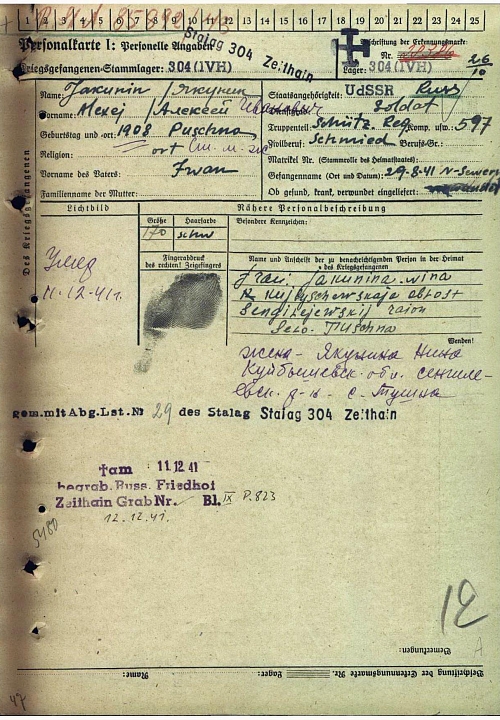 1 2 3 4 5 6 7 8 9 10 11 12 13 14 15 16 17 18 19 20 21 22 23 24 25
Stalag 304 Zeithain
Personalkarte I: Personelle Angaben
Beschriftung der Erkennungsmarke
Nr.
Kriegsgefangenen-Stammlager: 304 (IVH)
Lager: 304 (IVH)
26/10
Des Kriegsgefangenen
Name: Jakunin / Якунин
Staatsangehörigkeit: UdSSR Russ
Vorname: Alexej / Алексей Иванович
Soldat
Geburtstag und -ort: 1908 Puschna
Truppenteil: Schütz. Reg. Komp. usw.: 597
Religion:
Zivilberuf: Schmied Berufs-Gr.:
Matrikel Nr. (Stammrolle des Heimatstaates):
Vorname des Vaters: Iwan
Gefangennahme (Ort und Datum): 29.8.41
Familienname der Mutter:
Ob gesund, krank, verwundet eingeliefert:
Lichtbild
Nähere Personalbeschreibung
Größe
Haarfarbe
Besondere Kennzeichen:
170
schw
Fingerabdruck
des rechten! Zeigefingers
Name und Anschrift der zu benachrichtigenden Person in der Heimat
des Kriegsgefangenen
Умер
11.12.41г.
Frau: Jakunina Nina
Kujbyschewskaja oblost
raion
Selo. Tuschna
Wenden!
жена - Якунина Нина
Куйбышевск. обл. сенгиле-
евск. р-н. с. Тушна
gem. mit Abg. Lst. Nr 29 des Stalag Stalag 304 Zeithain
†am 11.12.41
begrab. Russ. Friedhof
Zeithain Grab Nr. Bl. IX P. 823
12.12.41.
5480
Bemerkungen:
Name:
Lager:
Beschriftung der Erkennungsmarke Nr.
47